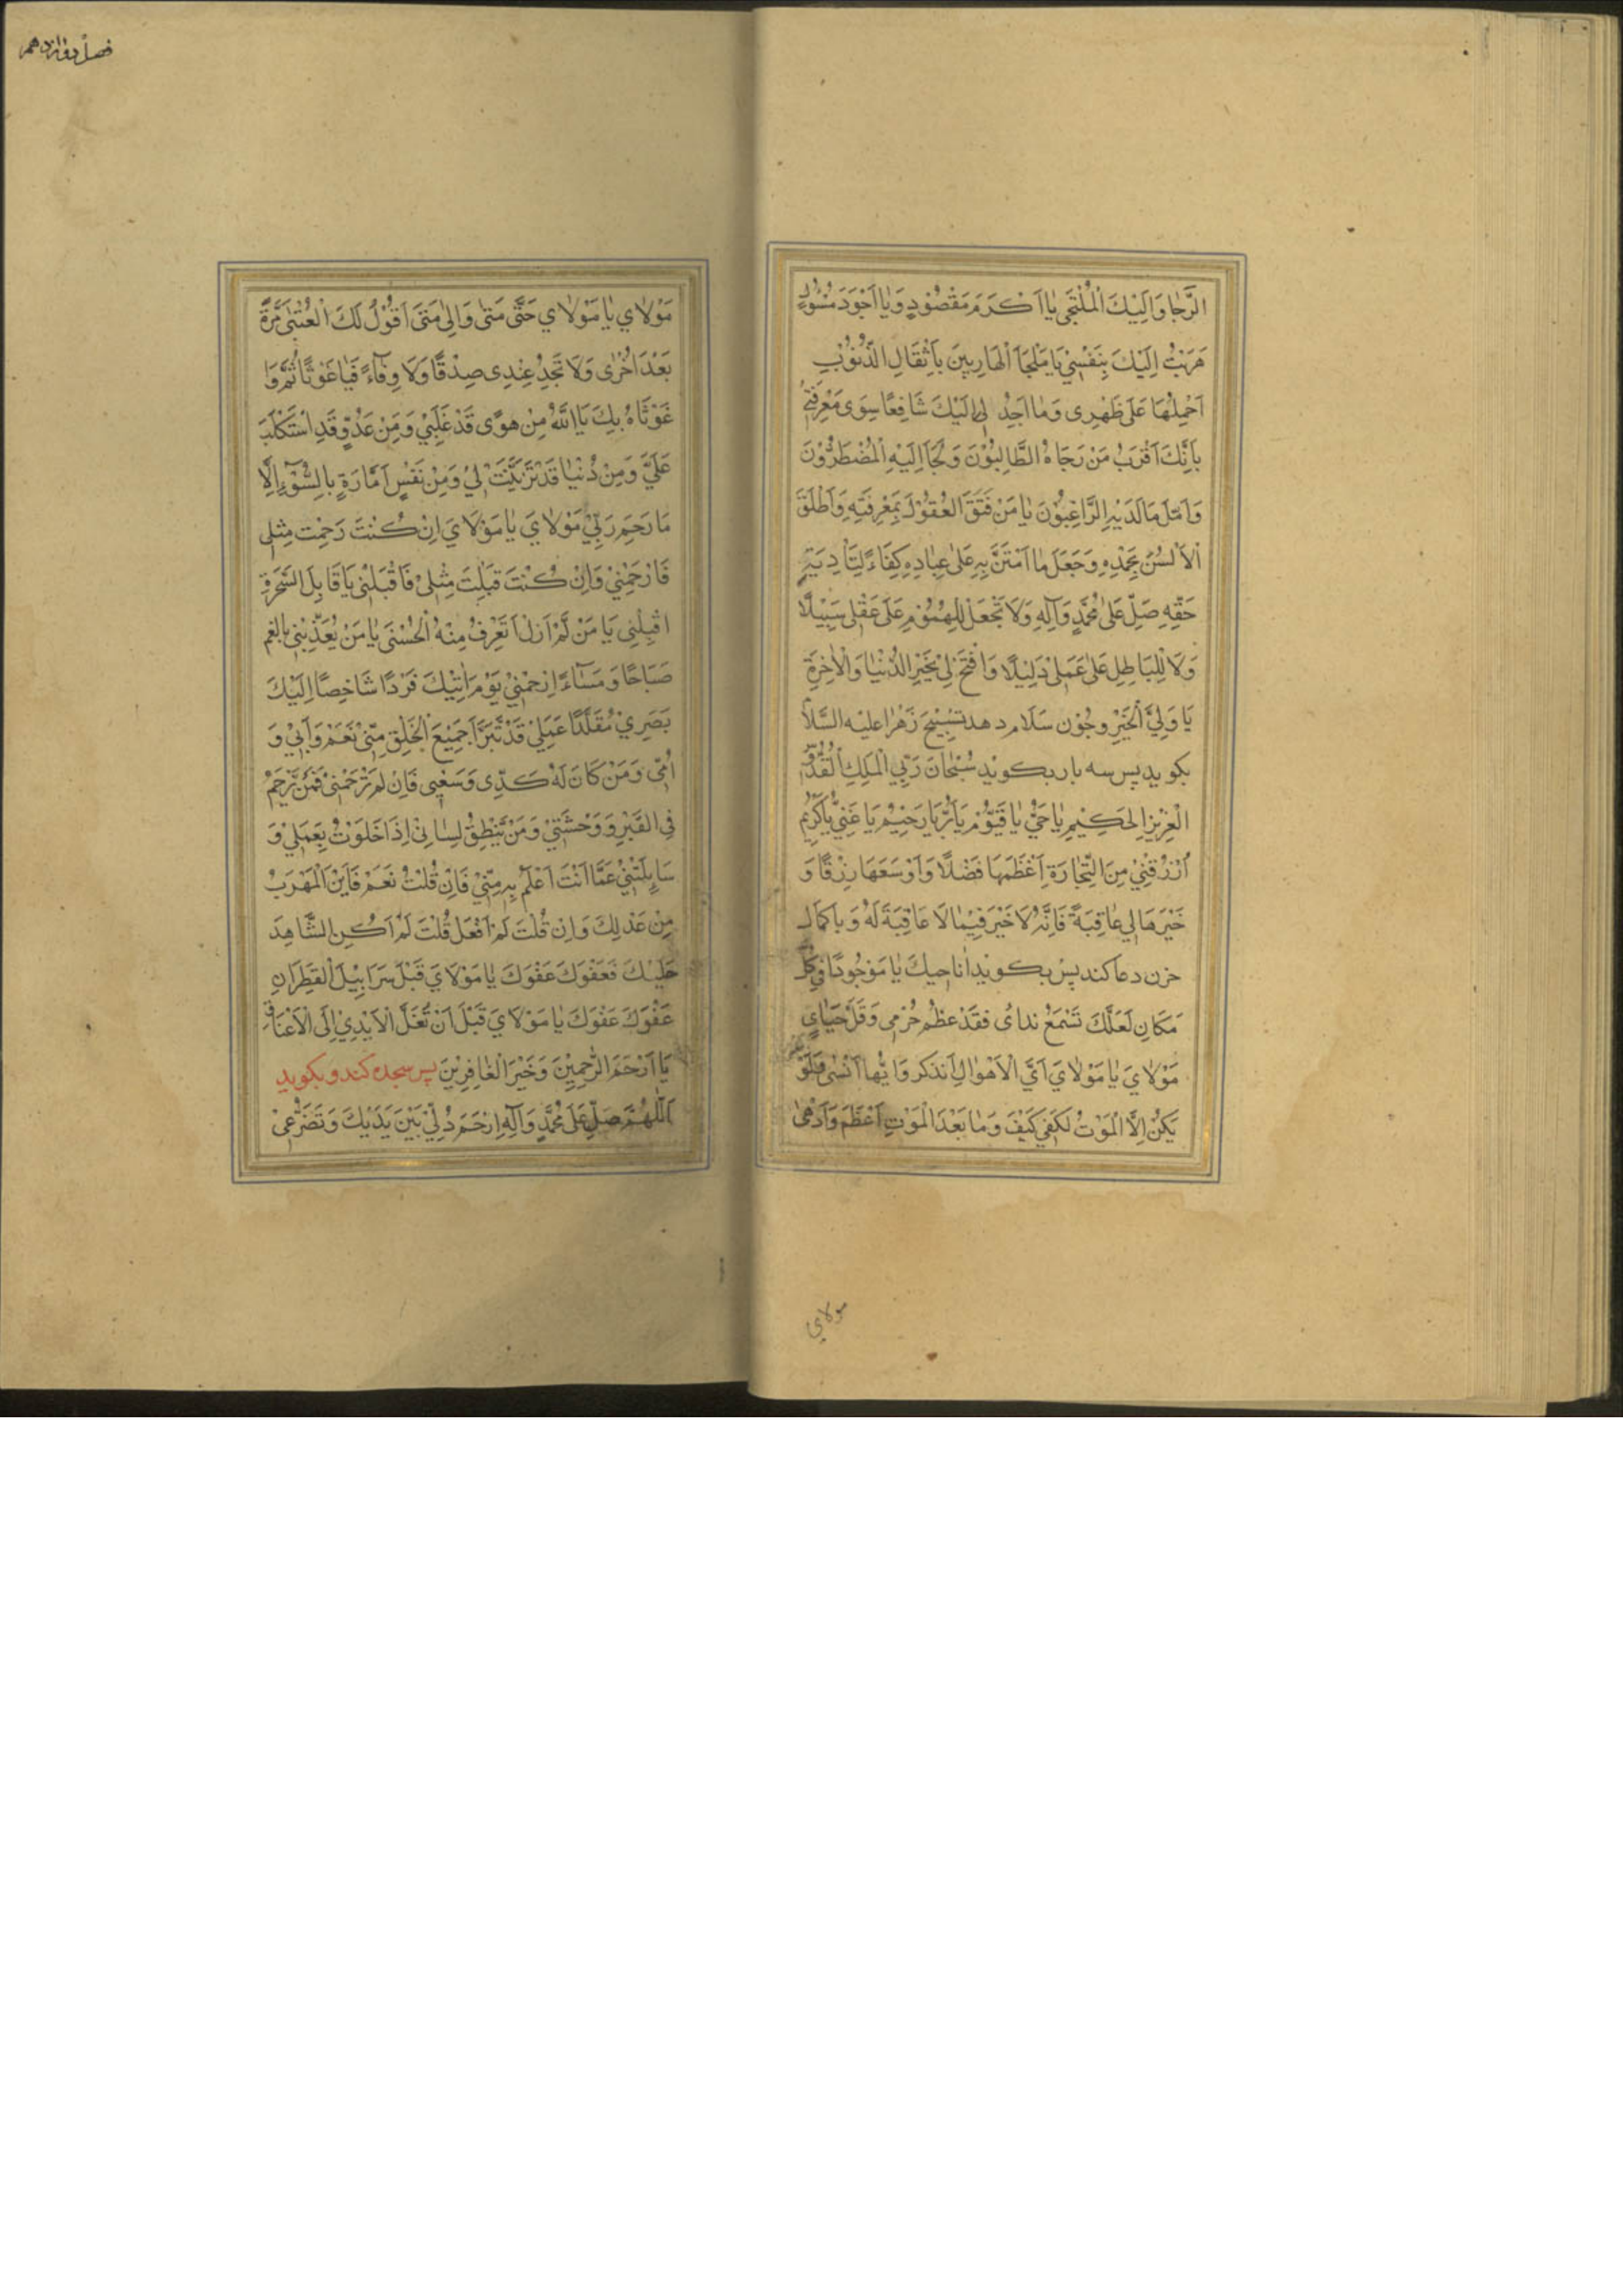 الرَّجا وَاِلَيْكَ الْمُلْتَجى يا اَكْرَمَ مَقْصُوْدٍ وَيا اَجْوَدَ مَسْئُوْلٍ
هَرَبْتُ اِلَيْكَ بِنَفْسِيْ يَا مَلْجَاَ الْهَارِبِيْنَ بِاَثْقَالِ الذُّنُوْبِ
اَحْمِلُهَا عَلَى ظَهْرِى وَمَا اَجِدُ لِى اِلَيْكَ شَافِعًا سِوَى مَعْرِفَتِى
بِاَنَّكَ اَقْرَبُ مَنْ رَجَاهُ الطَّالِبُوْنَ وَلَجَاَ اِلَيْهِ الْمُضْطَرُّوْنَ
وَاَمَّلَ مَا لَدَيْهِ الرَّاغِبُوْنَ يَا مَنْ فَتَقَ الْعُقُوْلَ بِمَعْرِفَتِهِ وَاَطْلَقَ
الْاَلْسُنَ بِحَمْدِهِ وَجَعَلَ مَا امْتَنَّ بِهِ عَلىٰ عِبَادِهِ كِفَاءً لِتَاْدِيَةِ
حَقِّهِ صَلِّ عَلىٰ مُحَمَّدٍ وَآلِهِ وَلَا تَجْعَلْ لِلْهُمُوْمِ عَلَى عَقْلِى سَبِيْلًا
وَلَا لِلْبَاطِلِ عَلىٰ عَمَلِىْ دَلِيْلًا وَافْتَحْ لِىْ بِخَيْرِ الدُّنْيَا وَالْاٰخِرَةِ
يَا وَلِيَّ الْخَيْرِ وجُوْن سَلَام دهد تَسْبِيْحِ زَهْرَا عليه السَّلاَ
بكويد پس سه بار بكويد سُبْحَانَ رَبِّي الْمَلِكِ الْقُدُّوْ
الْعَزِيْزِ الحَكِيْمِ يَا حَيُّ يَا قَيُّوْمُ يَا بَرُّ يَا رَحِيْمُ يَا غَنِيُّ يَا كَرِيْمُ
اُرْزُقْنِيْ مِنَ التِّجَارَةِ اَعْظَمَهَا فَضْلًا وَاَوْسَعَهَا رِزْقًا وَ
خَيْرَهَا لِي عَاقِبَةً فَاِنَّهُ لَا خَيْرَ فِيْمَا لَا عَاقِبَةَ لَهُ وَ باكمال
حزن دعا كند پس بكويد اُناجيكَ يَا مَوْجُودًا في كُلِّ
مَكَانٍ لَعَلَّكَ تَسْمَعُ نداى فقَدْ عظُمَ جُرْمِى وَقَلَّ حَيَاىِ
مَوْلَايَ يَا مَوْلَايَ اَيَّ الْاَهْوَالِ اَتَذَكَّر وَاَيُّهَا اَنْسٰى وَلَوْ لَمْ
يَكُنْ اِلَّا الْمَوْتُ لَكَفَى كَيْفَ وَمَا بَعْدَ الْمَوْتِ اَعْظَمُ وَاَدْهىٰ
مولاي
فصل دوازدهم
مَوْلَاي يَا مَوْلَاي حَتّٰى مَتىٰ وَاِلىٰ مَتىَ اَقُوْلُ لَكَ الْعُتْبىٰ مَرَّةً
بَعْدَ اُخْرٰى وَلَا تَجِدُ عِنْدِى صِدْقًا وَلَا وِفَاءً فَيَا غَوْثَا ثُمَّ وَا
غَوْثَاهُ بِكَ يَا اللّٰهُ مِنْ هوًى قَدْ غَلَبَنِيْ وَمِنْ عَدُوٍّ قَدِ اسْتَكْلَبَ
عَلَيَّ وَمِنْ دُنْيَا قَدْ تَزَيَّنَتْ لِيْ وَمِنْ نَفْسٍ اَمَّارَةٍ بِالسُّوْءِ اِلَّا
مَا رَحِمَ رَبِّيْ مَوْلَايَ يَا مَوْلَايَ اِنْ كُنْتَ رَحِمْتَ مِثلى
فَارْحَمْنِيْ وَاِنْ كُنْتَ قَبِلْتَ مِثْلِىْ فَاقْبَلْنِى يَا قَابِلَ السَّحَرَةِ
اقْبِلْنِى يَا مَنْ لَمْ اَزَلْ اَتَعَرَّفُ مِنْهُ الْحُسْنَى يَا مَنْ يُغَذِّيْنِي بِالنِعَمِ
صَبَاحًا وَمَسَآءً اِرْحَمْنِيْ يَوْمَ اٰتِيْكَ فَرْدًا شَاخِصًا اِلَيْكَ
بَصَرِيْ مُقَلَّدًا عَمَلِيْ قَدْ تَبَرَّاَ جَمِيْعُ الْخَلْقِ مِنِّيْ نَعَمْ وَاَبِيْ وَ
اُمِّى وَمَنْ كَانَ لَهُ كَدِّى وَسَعْيِى فَاِنْ لَمْ تَرْحَمْنِىْ فَمَنْ يَرْحَمُ
فِى الْقَبْرِ وَوَحْشَتِيْ وَمَنْ يَنْطِقُ لِسَانِىْ اِذَا خَلَوْتُ بِعَمَلِيْ وَ
سَاۤيَلْتَنِيْ عَمَّا اَنْتَ اَعْلَمُ بِهِ مِنِّيْ فَاِنْ قُلْتُ نَعَمْ فَاَيْنَ الْمَهْرَبُ
مِنْ عَدْلِكَ وَاِنْ قُلْتُ لَمْ اَفْعَلْ قُلْتَ اَلَمْ اَكُنِ الشَّاهِدَ
عَلَيْكَ فَعَفْوَكَ عَفْوَكَ يَا مَوْلَايَ قَبْلَ سَرَابِيْلَ الْقَطِرَانِ
عَفْوَكَ عَفْوَكَ يَا مَوْلَايَ قَبْلَ اَنْ تُغَلَّ الْاَيْدِيْ اِلَى الْاَعْنَاقِ
يَا اَرْحَمَ الرَّحِمِيْنَ وَخَيْرَ الْغَافِرِيْنَ پس سجده كند و بكويد
اَللّٰهُمَّ صَلِّ عَلىٰ مُحَمَّدٍ وَآلِهِ اِرْحَمْ ذُلِّيْ بَيْنَ يَدَيْكَ وَتَضَرُّعِىْ